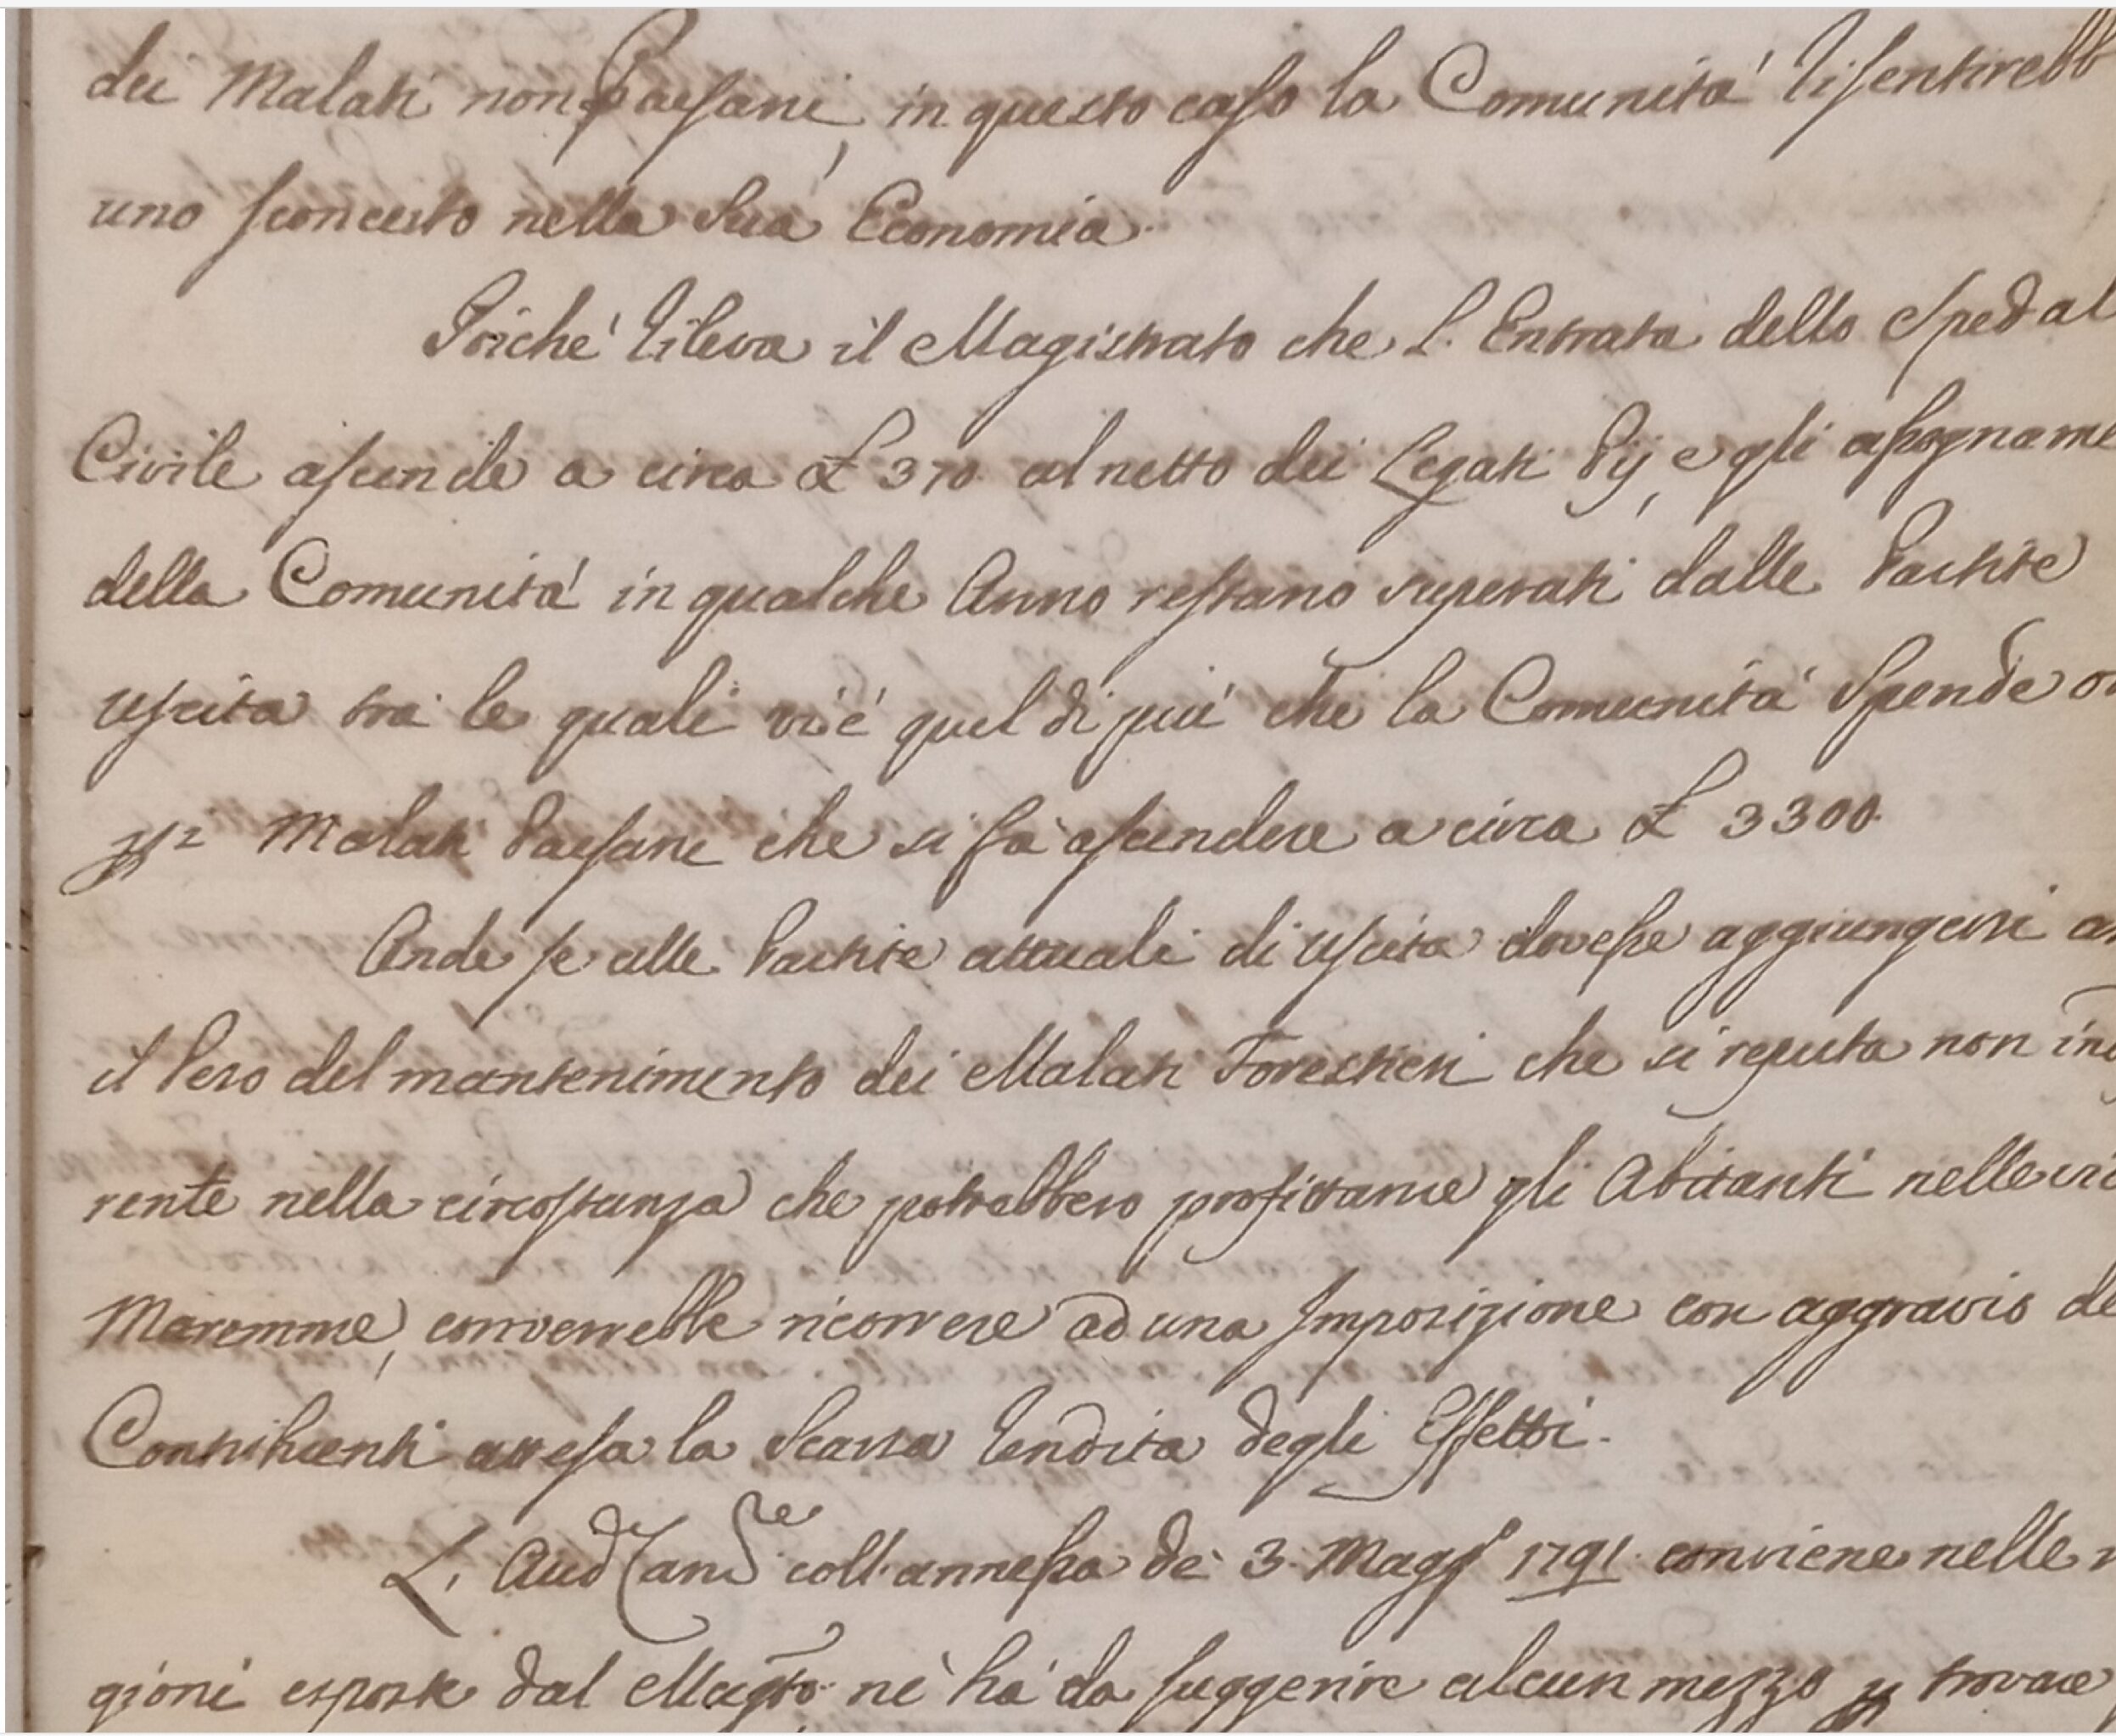 dei Malati non Paesani, in questo caso la Comunità risentirebb
uno sconcerto nella Sua Economia.
Poiche' rileva il Magistrato che L'Entrata dello Spedal
Civile ascende a circa £ 370. al netto dei Legati Pij, e gli assegname
della Comunità in qualche Anno restano superati dalle Partite
uscita tra le quali vi è quel di più che la Comunità Spende or
Malati Paesani che si fà ascendere a circa £ 3300.
Onde se alle Partite attuali di uscita dovesse aggiungersi an
il Peso del mantenimento dei Malati Forestieri che si reputa non ind
rente nella circostanza che potrebbero profittarne gli Abitanti nelle vic
Maremme, converrebbe ricorrere ad una Imposizione con aggravio de
Contribuenti attesa la Scarsa Rendita degli Effetti.
L'Aud coll'annessa de' 3. Magg° 1791. conviene nelle r
gioni esposte dal Magto nè há da suggerire alcun mezzo p trovare